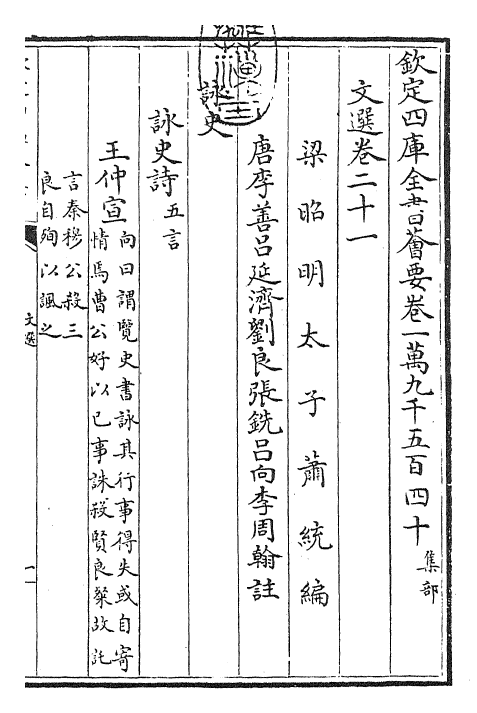 欽定四庫全書薈要卷一萬九千五百四十 集部
文選卷二十一
梁昭明太子蕭統編
唐李善呂延濟劉良張銑呂向李周翰註
詠史
詠史詩 五言
王仲宣 向曰謂覽史書詠其行事得失或自寄
情焉曹公好以己事誅殺賢良粲故託
言秦穆公殺三
良自殉以諷之
文選
一